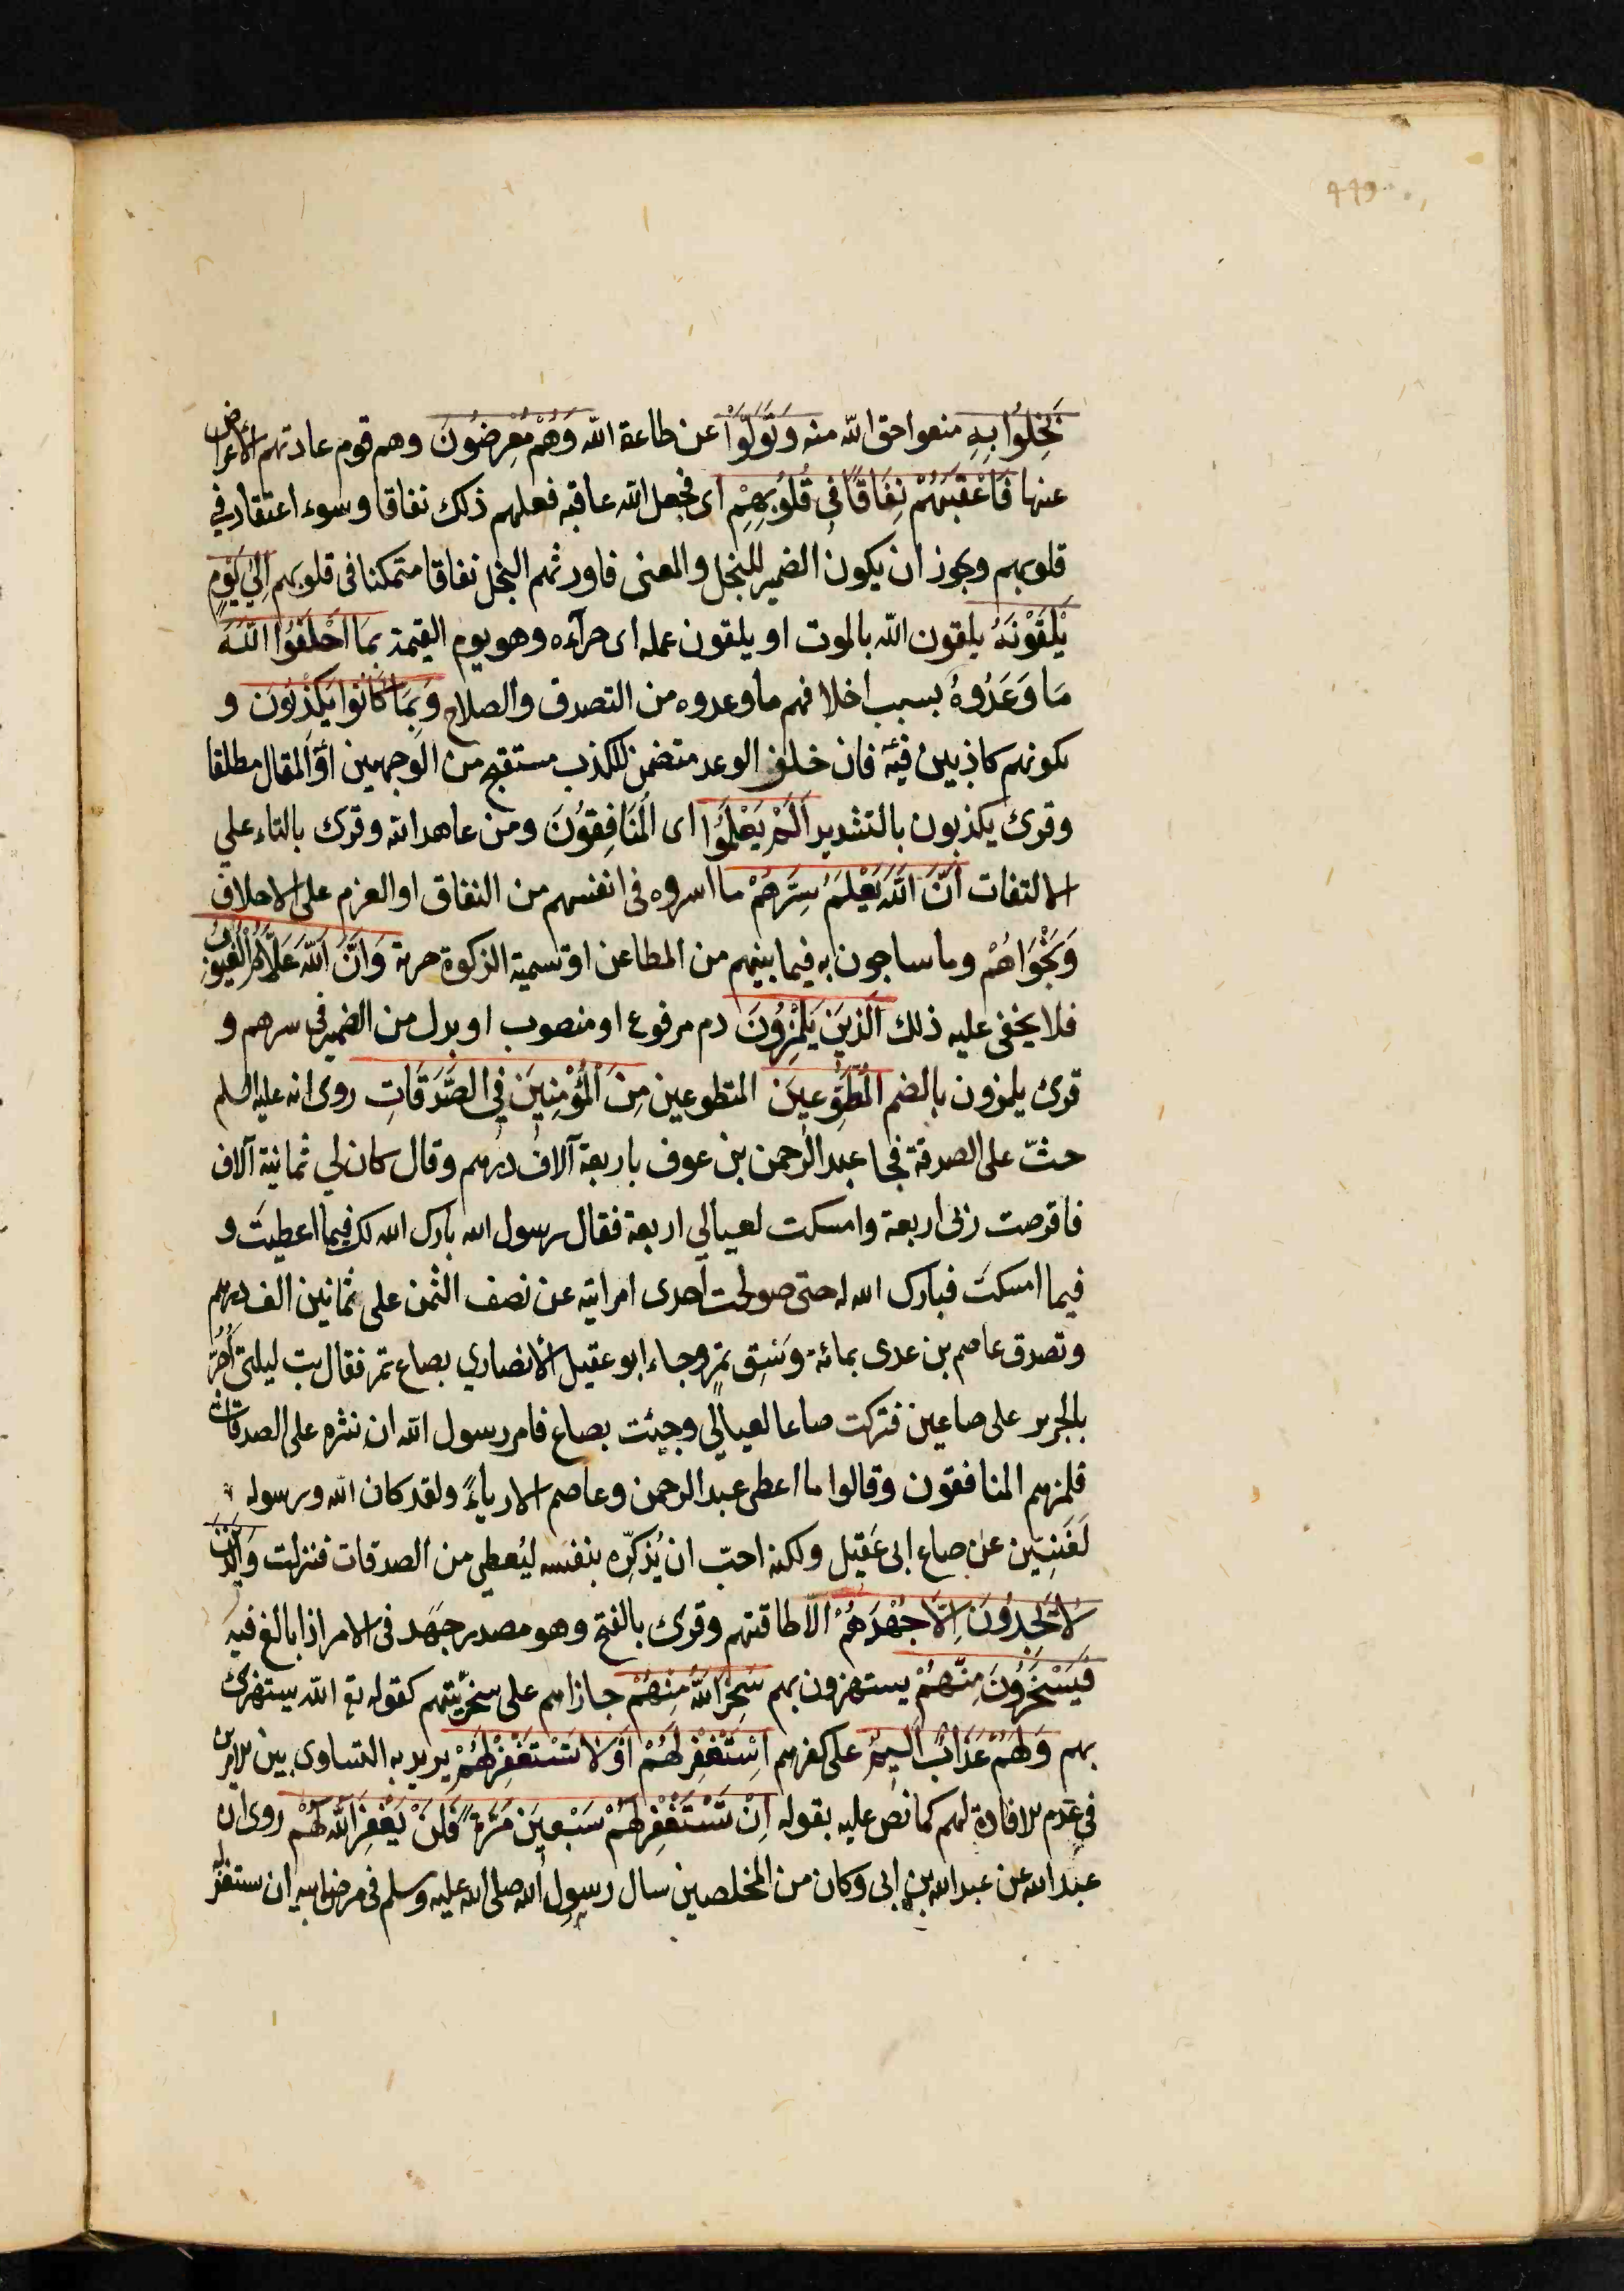 449
بَخِلُوا بِهِ منعوا حق الله منه وَتَوَلَّوْا عن طاعة الله وَهُمْ مُعْرِضُونَ وهم قوم عادتهم الاعراض
عنها فَاَعْقَبَهُمْ نِفَاقًا فِي قُلُوبِهِمْ اى فجعل الله عاقبة فعلهم ذلك نفاقا وسوء اعتقاد في
قلوبهم ويجوز ان يكون الضمير للبخل والمعنى فاورثهم البخل نفاقا متمكنا فى قلوبهم اِلىٰ يَوْمِ
يَلْقَوْنَهُ يلقون الله بالموت او يلقون عمله اى جزآءه وهو يوم القيمة بِمَا اَخْلَفُوا اللّٰهَ
مَا وَعَدُوهُ بسبب اخلافهم ما وعدوه من التصدق والصلاح وَبِمَا كَانُوا يَكْذِبُونَ و
بكونهم كاذبين فيه فان خلف الوعد متضمن للكذب مستقبح من الوجهين اَو المقال مطلقا
وقرئ يكذبون بالتشديد اَلَمْ يَعْلَمُوا اى المَنَافِقُونَ ومن عاهد الله وقرئ بالتاء علي
الالتفات اَنَّ اللّٰهَ يَعْلَمُ سِرَّهُمْ ما اسروه فى انفسهم من النفاق او العزم على الاخلاف
وَنَجْوَاهُمْ وما يتناجون به فيما بينهم من المطاعن او تسمية الزكوة جزية وَاَنَّ اللّٰهَ عَلَّامُ الْغُيُوبِ
فلا يخفى عليه ذلك اَلَّذِينَ يَلْمِزُونَ ذم مرفوع او منصوب او بدل من الضمير فى سرهم و
قرئ يلمزون بالضم اَلْمُطَّوِّعِينَ المتطوعين مِنَ الْمُؤْمِنِينَ فِي الصَّدَقَاتِ روى انه عليه السلم
حثّ على الصدقة فجا عبد الرحمن بن عوف باربعة آلاف درهم وقال كان لي ثمانية آلاف
فاقرضت ربى اربعة وامسكت لعيالي اربعة فقال رسول الله بارك الله لك فيما اعطيتَ و
فيما امسكتَ فبارك الله له حتى صولحت احدى امراتيه عن نصف الثمن على ثمانين الف درهم
وتصدق عاصم بن عدى بمائة وَسْقِ تمر وجاء ابو عقيل الأنصاري بصاع تمر فقال بت ليلتى اَجُرُّ
بالجرير على صاعين فتركت صاعا لعيالي وجيئت بصاع فامر رسول الله ان نثره على الصدقات
فلمزهم المنافقون وقالوا ما اعطى عبد الرحمن وعاصم الا رياءً ولقد كان الله ورسوله
لَغَنِيَّين عن صاع ابى عَقيل ولكنه احبّ ان يُذكِّره بنفسه ليُعطى من الصدقات فنزلت وَالَّذِينَ
لَا يَجِدُونَ اِلَّا جُهْدَهُمْ الّا طاقتهم وقرئ بالفتح وهو مصدر جَهَد فى الامر اذا بالغ فيه
فَيَسْخَرُونَ مِنْهُمْ يستهزون بهم سَخِرَ اللّٰهُ مِنْهُمْ جازاهم على سخريّتهم كقوله تع الله يستهزئ
بهم وَلَهُمْ عَذَابٌ اَلِيمٌ على كفرهم اِسْتَغْفِرْ لَهُمْ اَوْ لَا تَسْتَغْفِرْ لَهُمْ يريد به التساوى بين الامرين
فى عدم الافادة لهم كما نص عليه بقوله اِنْ تَسْتَغْفِرْ لَهُمْ سَبْعِينَ مَرَّةً فَلَنْ يَغْفِرَ اللّٰهُ لَهُمْ روى ان
عبد الله بن عبد الله بن ابى وكان من المخلصين سال رسول الله صلى الله عليه وسلم فى مرض ابيه ان يستغفر له